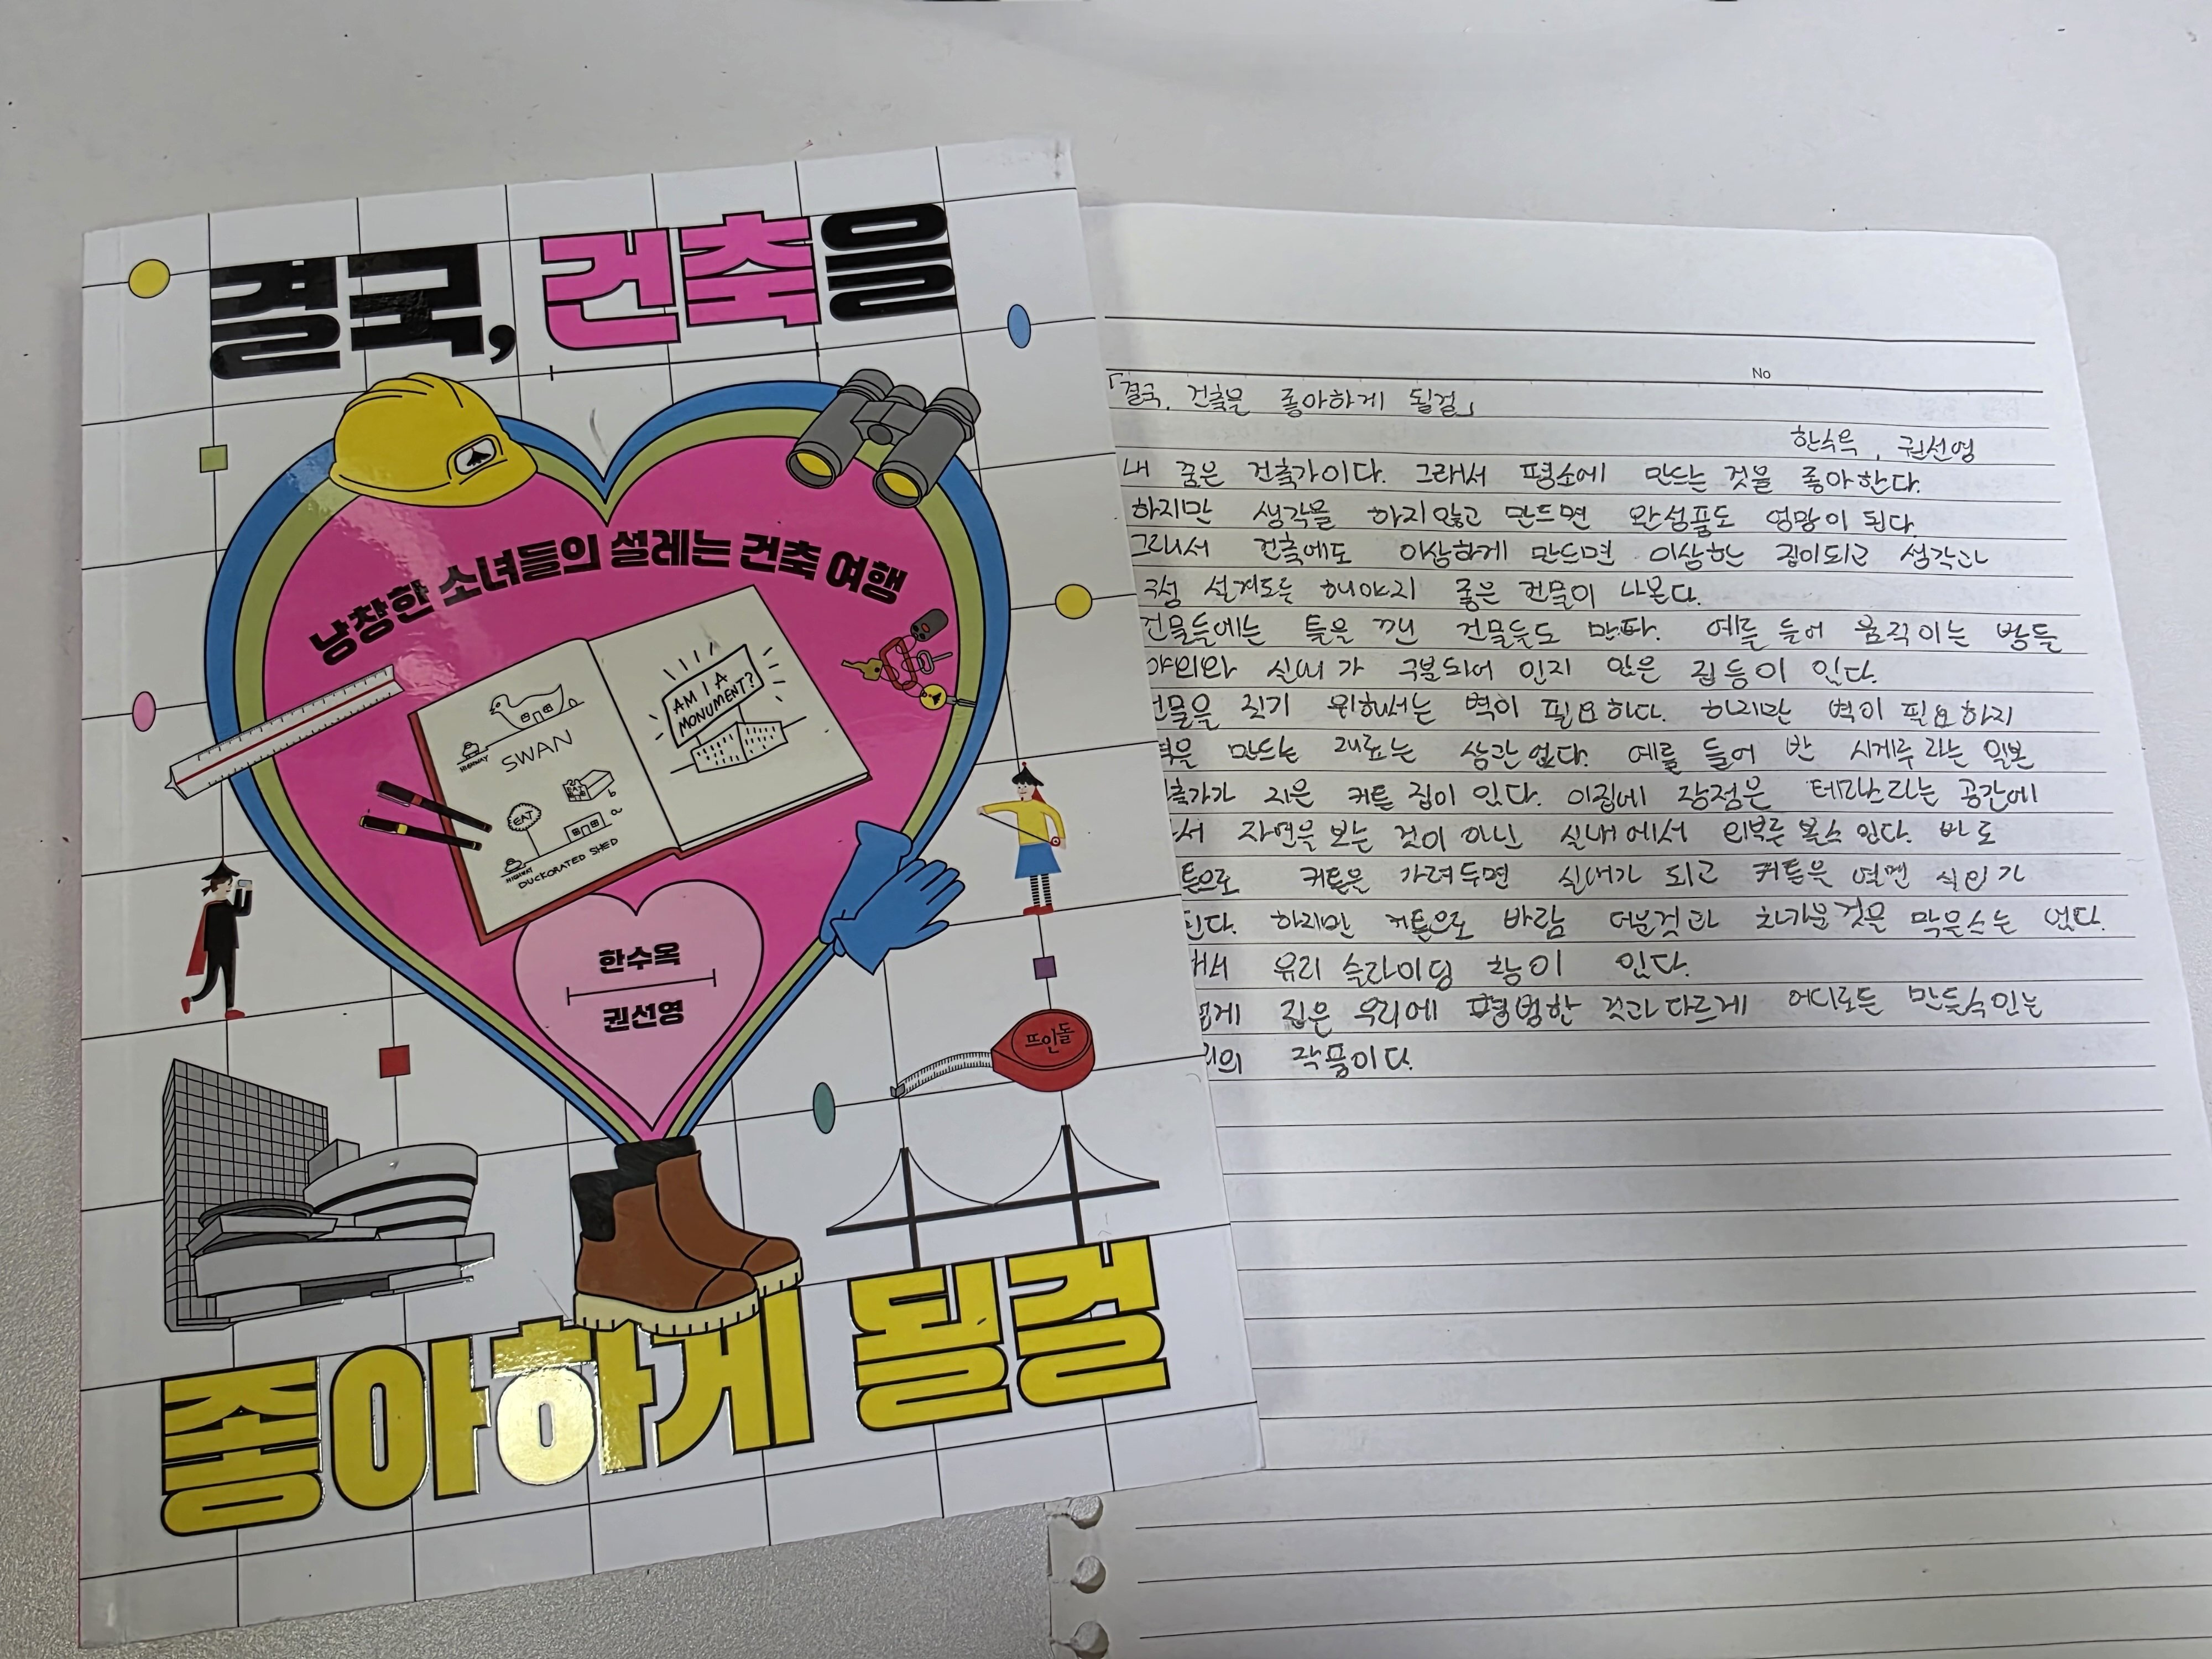 결국, 건축을
낭창한 소녀들의 설레는 건축 여행
AM I A
MONUMENT?
HIGHWAY
SWAN
EAT
EAT
b
a
HIGHWAY
DUCKORATED SHED
한수옥
권선영
뜨인돌
좋아하게 될걸
No
「결국, 건축을 좋아하게 될걸」
한수옥, 권선영
내 꿈은 건축가이다. 그래서 평소에 만드는 것을 좋아한다.
하지만 생각을 하지않고 만드면 완성품도 엉망이 된다.
그래서 건축에도 이상하게 만드면 이상한 집이되고 생각과
구성 설계도를 해야지 좋은 건물이 나온다.
건물들에는 틀을 깬 건물들도 많다. 예를 들어 움직이는 방들
야외와 실내가 구분되어 있지 않은 집 등이 있다.
건물을 짓기 위해서는 벽이 필요하다. 하지만 벽이 필요하지
벽을 만드는 재료는 상관없다. 예를 들어 반 시게루라는 일본
축가가 지은 커튼 집이 있다. 이집에 장점은 테라스라는 공간에
서 자연을 보는 것이 아닌 실내에서 외부를 볼수 있다. 바로
튼으로 커튼을 가려두면 실내가 되고 커튼을 열면
된다. 하지만 커튼으로 바람 더운것과 차가운것을 막을수는 없다.
래서 유리 슬라이딩 창이 있다.
렇게 집은 우리에 평범한 것과다르게 어디로든 만들수있는
의 작품이다.